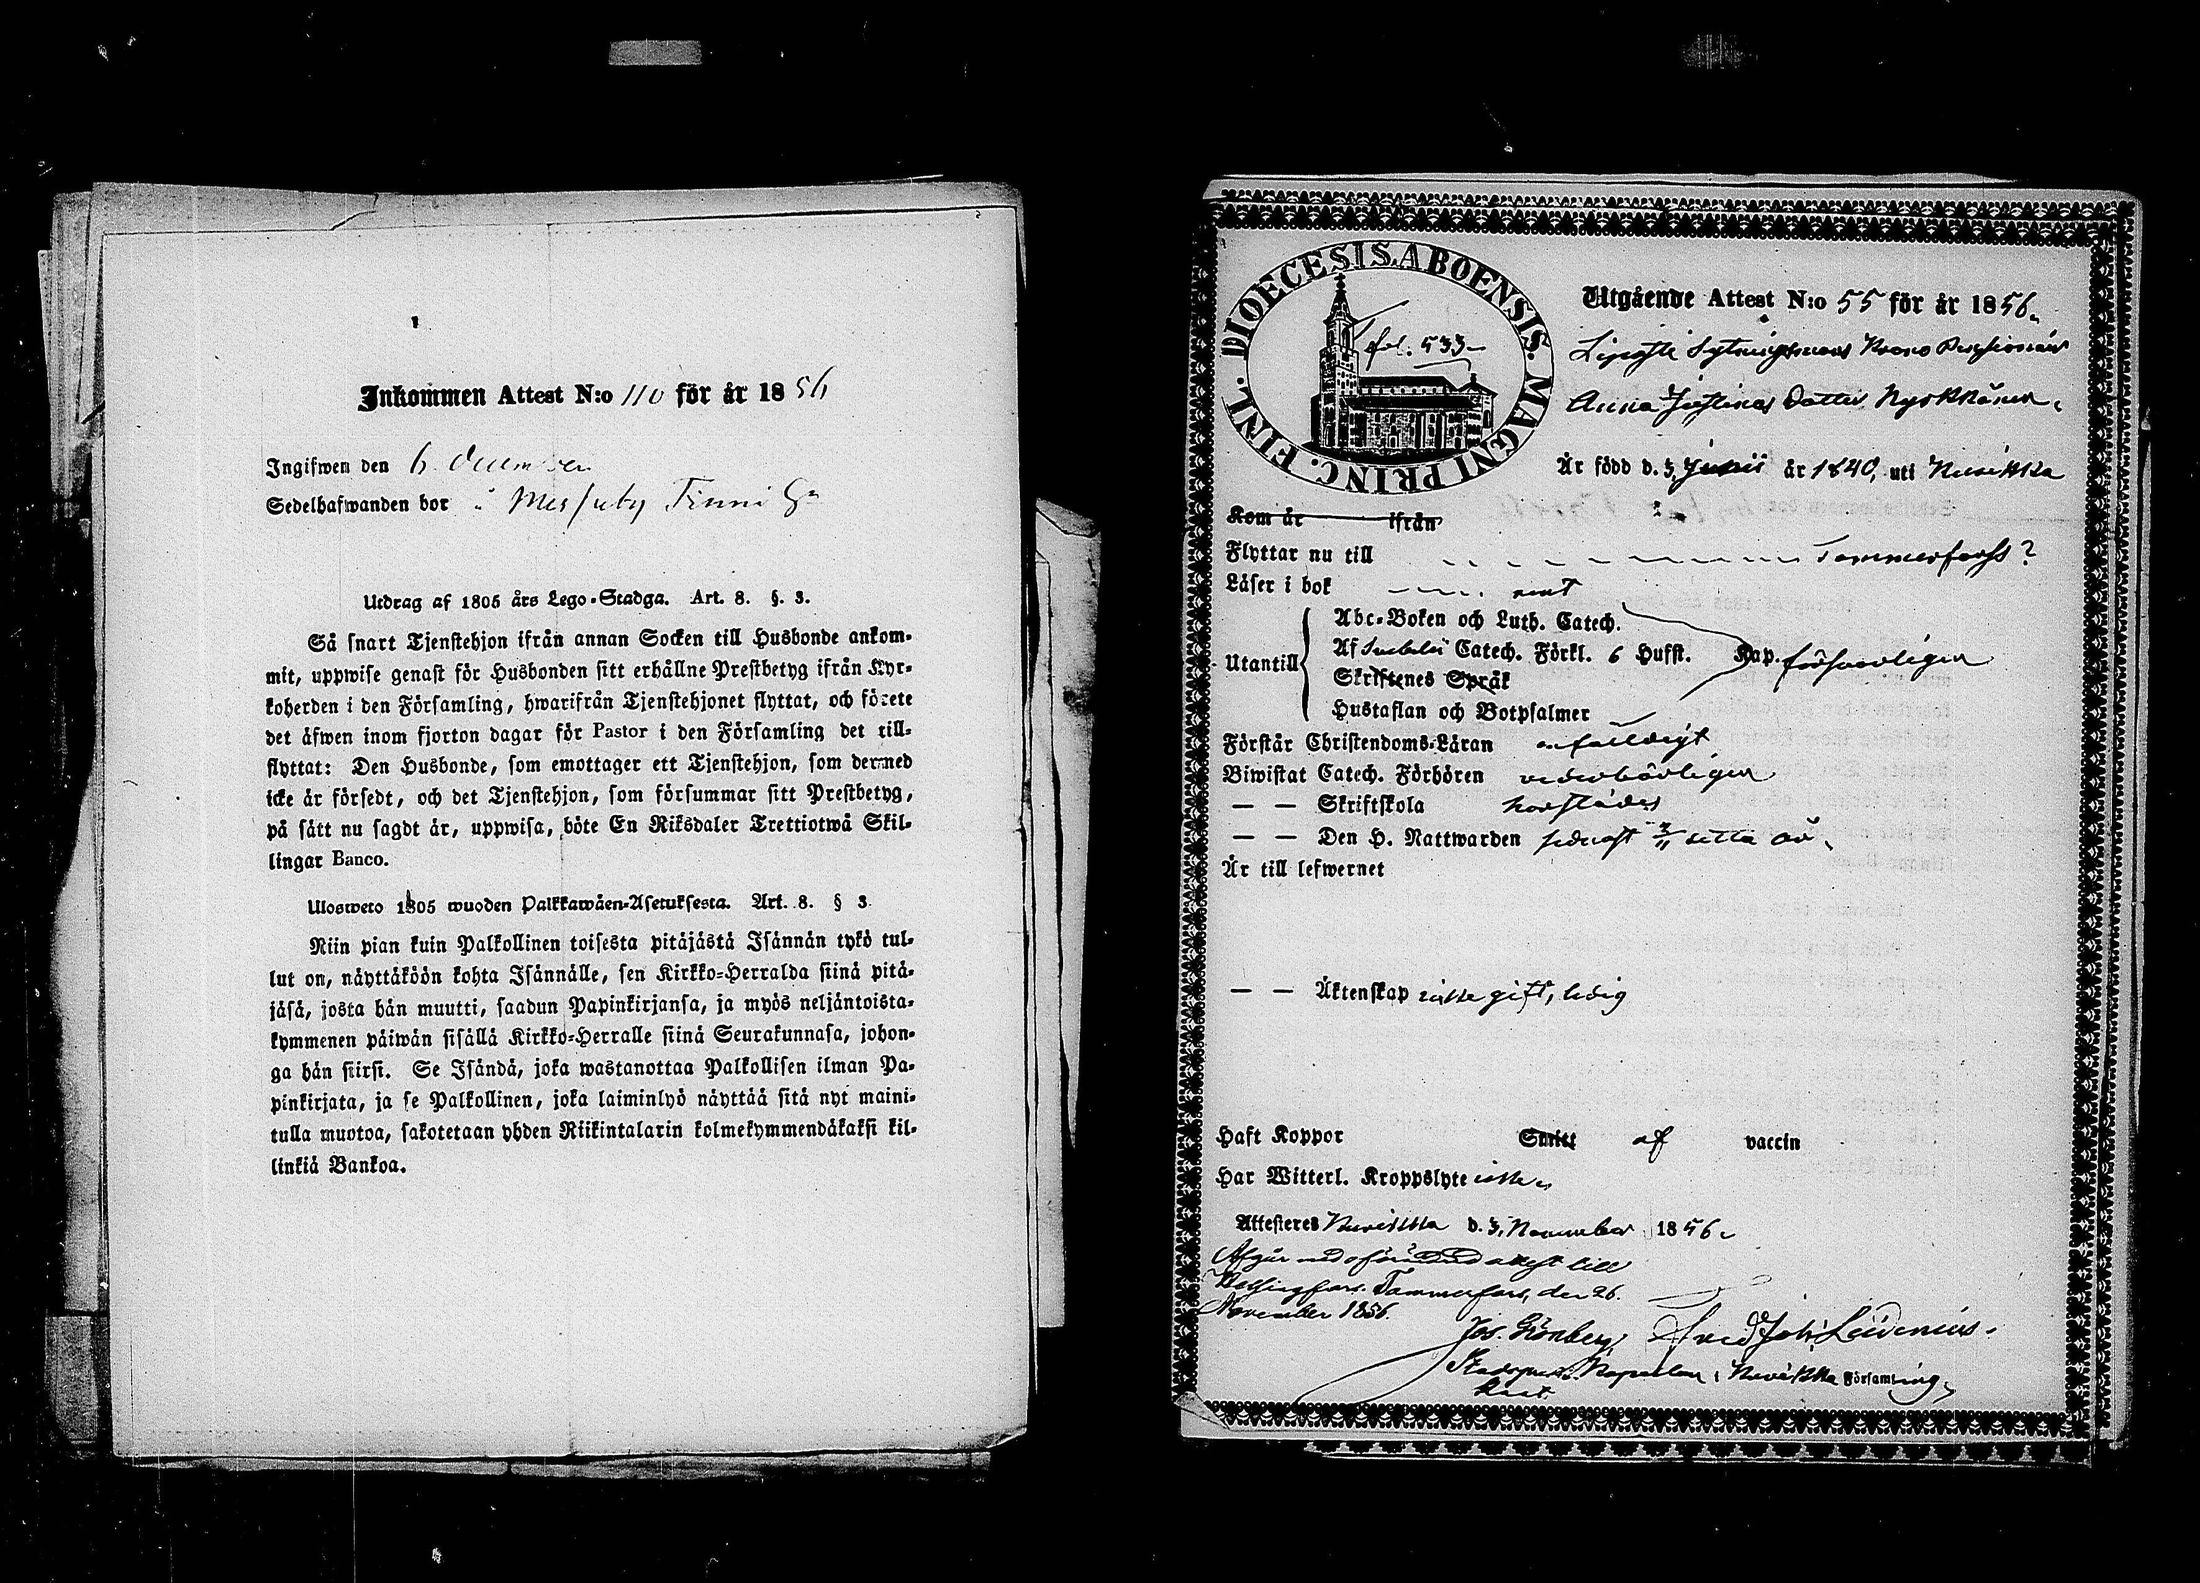 Inkommen Attest N:o 110 för år 1856
Ingifwen den 6 December
Sedelhafwanden bor i
Utdrag af 1805 års Lego-Stadga. Art. 8. §. 3.
Så snart Tjenstehjon ifrån annan Socken till Husbonde ankom-
mit, uppwise genast för Husbonden sitt erhållne Prestbetyg ifrån Kyr-
koherden i den Församling, hwarifrån Tjenstehjonet flyttat, och förete
det äfwen inom fjorton dagar för Pastor i den Församling det till-
flyttat: Den Husbonde, som emottager ett Tjenstehjon, som dermed
icke är försedt, och det Tjenstehjon, som försummar sitt Prestbetyg,
på sätt nu sagdt är, uppwisa, böte En Riksdaler Trettiotwå Skil-
lingar Banco.
Ulosweto 1805 wuoden Palkkawäen-Asetuksesta. Art. 8. § 3.
Niin pian kuin Palkollinen toisesta pitäjästä Isännän tykö tul-
lut on, näyttäköön kohta Isännälle, sen Kirkko-Herralda siinä pitä-
jäsä, josta hän muutti, saadun Papinkirjansa, ja myös neljäntoista-
kymmenen päiwän sisällä Kirkko-Herralle siinä Seurakunnasa, johon-
ga hän siirsi. Se Isändä, joka wastanottaa Palkollisen ilman Pa-
pinkirjata, ja se Palkollinen, joka laiminlyö näyttää sitä nyt maini-
tulla muotoa, sakotetaan yhden Riikintalarin kolmekymmendäkaksi kil-
linkiä Bankoa.
DIOECESIS ABOENSIS. MAGNI PRINC. FINL.
fol. 533
Utgående Attest N:o 55 för år 1856.
Anna Justina Dotter
Är född d. 3 Junii år 1840, uti Kuvikka
Kom år ifrån
Flyttar nu till Tammerfors?
Läser i bok
Utantill
Abc-Boken och Luth. Catech.
Af Svebelii Catech. Förkl. 6 Hufst. Kap. försvarligen
Skriftenes Språk
Hustaflan och Botpsalmer
Förstår Christendoms-Läran enfaldigt
Biwistat Catech. Förhören vederbörligen
— — Skriftskola
— — Den H. Nattwarden senast detta år.
Är till lefwernet
— — Äktenskap icke gift, ledig
Haft Koppor Smitt af vaccin
Har Witterl. Kroppslyte icke
Attesteres d. 3 November 1856.
Afgår med attest till
Helsingfors. Tammerfors, den 26.
November 1856.
Jos. Grönberg
Kapellan i Församling